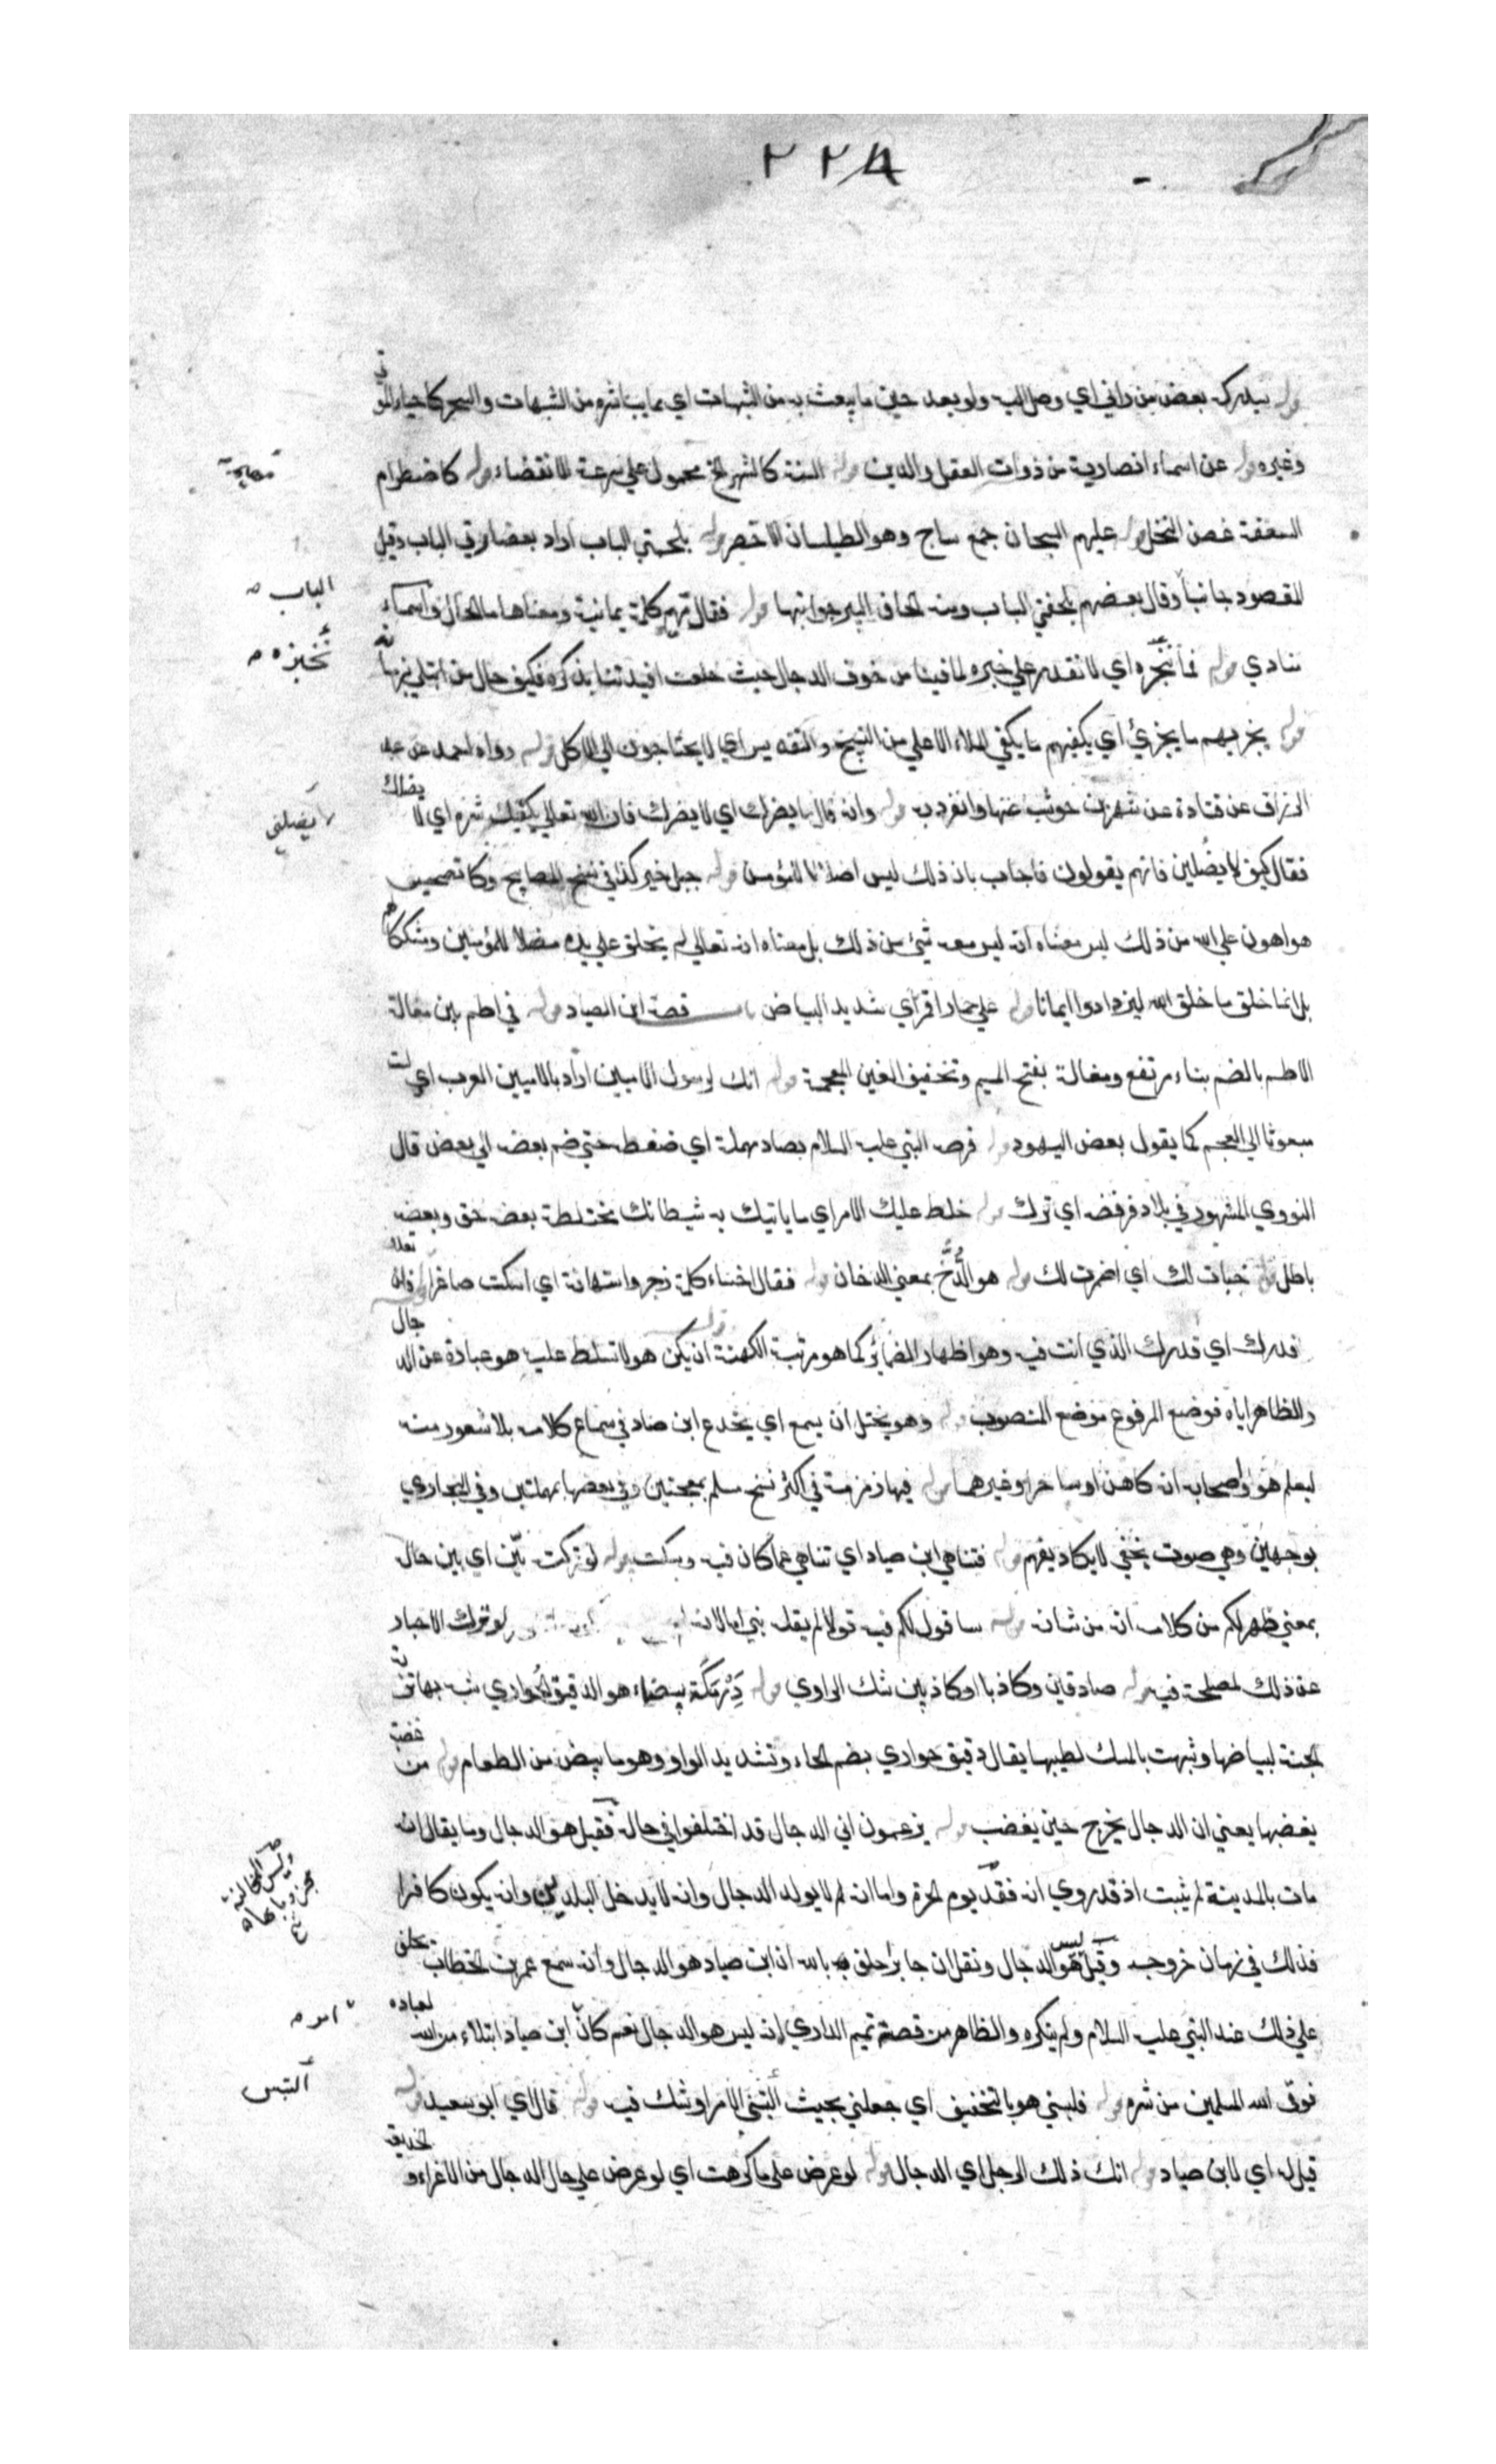 ٢٢٨
قوله سيدركه بعض من راني اي وصل اليه ولو بعد حين ما يبعث به من الشبهات اي مما يباشره من الشبهات والسحر كاحياء الموتي
وغيره قوله عن اسماء انصارية من ذوات العقل والدين قوله السنة كالشهر الخ محمول علي سرعة الانقضاء قوله كاضطرام
السعفة غصن النخل قوله عليهم السيجان جمع ساج وهو الطيلسان الاخضر قوله بلحمتي الباب اراد بعضادتي الباب وقيل
المقصود جانباه وقال بعضهم بلجفتي الباب ومنه الجاف البير جوانبها قوله فقال مهيم كلمة يمانية ومعناها ما الحال واسماء
منادي قوله فما نخبزه اي لا نقدر علي خبزه لما فينا من خوف الدجال حيث خلعت افيدتنا بذكره فكيف حال من ابتلي بزمانه
قوله يجزيهم ما يجزئ اي يكفيهم ما يكفي الملاء الاعلي من التسبيح والتقديس اي لا يحتاجون الي الاكل قوله رواه احمد عن عبد
الرزاق عن قتادة عن شهر بن حوشب عنها وانفرد به قوله وانه قال ما يضرك اي لا يضرك فان الله تعالي يكفيك شره اي لا يضلك
فقال كيف لا يضلني فانهم يقولون فاجاب بان ذلك ليس اضلالا للمؤمن قوله جبل خبز كذا في نسخ المصابيح وكانه تصحيف
هو اهون علي الله من ذلك ليس معناه انه ليس معه شيئ من ذلك بل معناه انه تعالي لم يخلق علي يده مضلا للمؤمنين ومشككا لهم
بل انما خلق ما خلق الله ليزدادوا ايمانا قوله علي حمار اقمر اي شديد البياض باب قصة ابن الصياد قوله في اطم بني مغالة
الاطم بالضم بناء مرتفع ومغالة بفتح الميم وتخفيف الغين المعجمة قوله انك رسول الاميين اراد بالاميين العرب اي لست
مبعوثا الي العجم كما يقول بعض اليهود قوله فرصه النبي عليه السلام بصاد مهملة اي ضغطه حتي ضم بعضه الي بعض قال
النووي المشهور في بلادنا فرفضه اي ترك قوله خلط عليك الامر اي ما ياتيك به شيطانك مختلطة بعضه حق وبعضه
باطل قوله خبات لك اي اضمرت لك قوله هو الدُّخّ بمعني الدخان قوله فقال اخساء كلمة زجر واستهانة اي اسكت صاغرا فلن تعدو
قدرك اي قدرك الذي انت فيه وهو اظهار الضمائر كما هو مرتبة الكهنة قوله ان يكن هو لا تسلط عليه هو عبارة عن الدجال
والظاهر اياه فوضع المرفوع موضع المنصوب قوله وهو يختل ان يسمع اي يخدع ابن صياد في سماع كلامه بلا شعور منه
ليعلم هو واصحابه انه كاهن او ساحر او غيرهما قوله فيها زمزمة في اكثر نسخ مسلم بمعجمتين وفي بعضها بمهملتين وفي البخاري
بوجهين وهي صوت يخفي لا يكاد يفهم قوله فتناهي ابن صياد اي تناهي عما كان فيه وسكت قوله لو تركته بيّن اي بين حاله
بمعني ظهر لكم من كلامه انه من شانه قوله ساقول لكم فيه قولا لم يقله نبي اما لانه لو ترك الاخبار
عن ذلك لمصلحة فيه قوله صادقين وكاذبا او كاذبين شك الراوي قوله دَرْمَكَة بيضاء هو الدقيق الحواري شبه بها تربة
الجنة لبياضها وشبهت بالمسك لطيبها يقال دقيق حواري بضم الحاء وتشديد الواو وهو ما بيض من الطعام قوله من غضبة
يغضبها يعني ان الدجال يخرج حين يغضب قوله يزعمون اني الدجال قد اختلفوا في حاله فقيل هو الدجال وما يقال انه
مات بالمدينة لم يثبت اذ قد روي انه فقد يوم الحرة واما انه لم لا يولد الدجال وانه لا يدخل البلدين وانه يكون كافرا
فذلك في زمان خروجه وقيل ليس هو الدجال ونقل ان جابرا حلف بالله ان ابن صياد هو الدجال وانه سمع عمر بن الخطاب يحلف
علي ذلك عند النبي عليه السلام ولم ينكره والظاهر من قصة تميم الداري انه ليس هو الدجال نعم كان ابن صياد ابتلاء من الله لعباده
فوقي الله المسلمين من شره قوله فلبسني هو بالتخفيف اي جعلني بحيث التبس الامر او شك فيه قوله قال اي ابو سعيد قوله
قيل له اي لابن صياد قوله انك ذلك الرجل اي الدجال قوله لو عرض علي ما كرهت اي لو عرض علي حال الدجال من الاغراء و الخديعة
الباب
نخبزه
يضلني
امره
التبس